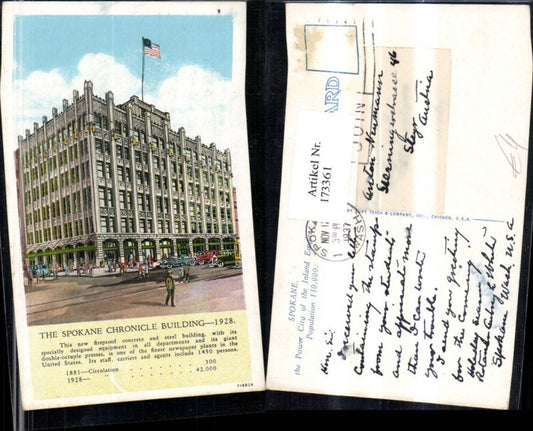 THE SPOKANE CHRONICLE BUILDING—1928.
This new fireproof concrete and steel building, with its
specially designed equipment in all departments and its giant
double-octuple presses, is one of the finest newspaper plants in the
United States. Its staff, carriers and agents include 1450 persons.
1881—Circulation 300
1928— 42,000
Artikel Nr.
173361
CARD
JOIN
SPOKANE
NOV 1
3 PM
1937
WASH
Anton Neumann
46
Steyr
Austria
& COMPANY, INC., CHICAGO, U.S.A.
SPOKANE,
the Power City of the Inland
Population 130,000.
Hon. Sir;
Received your letter
Containing the stamps
from your students
and appreciate more
than I can words
your trouble.
I send you greeting
for the Coming
Holiday season,
Spokane Wash, U.S.A